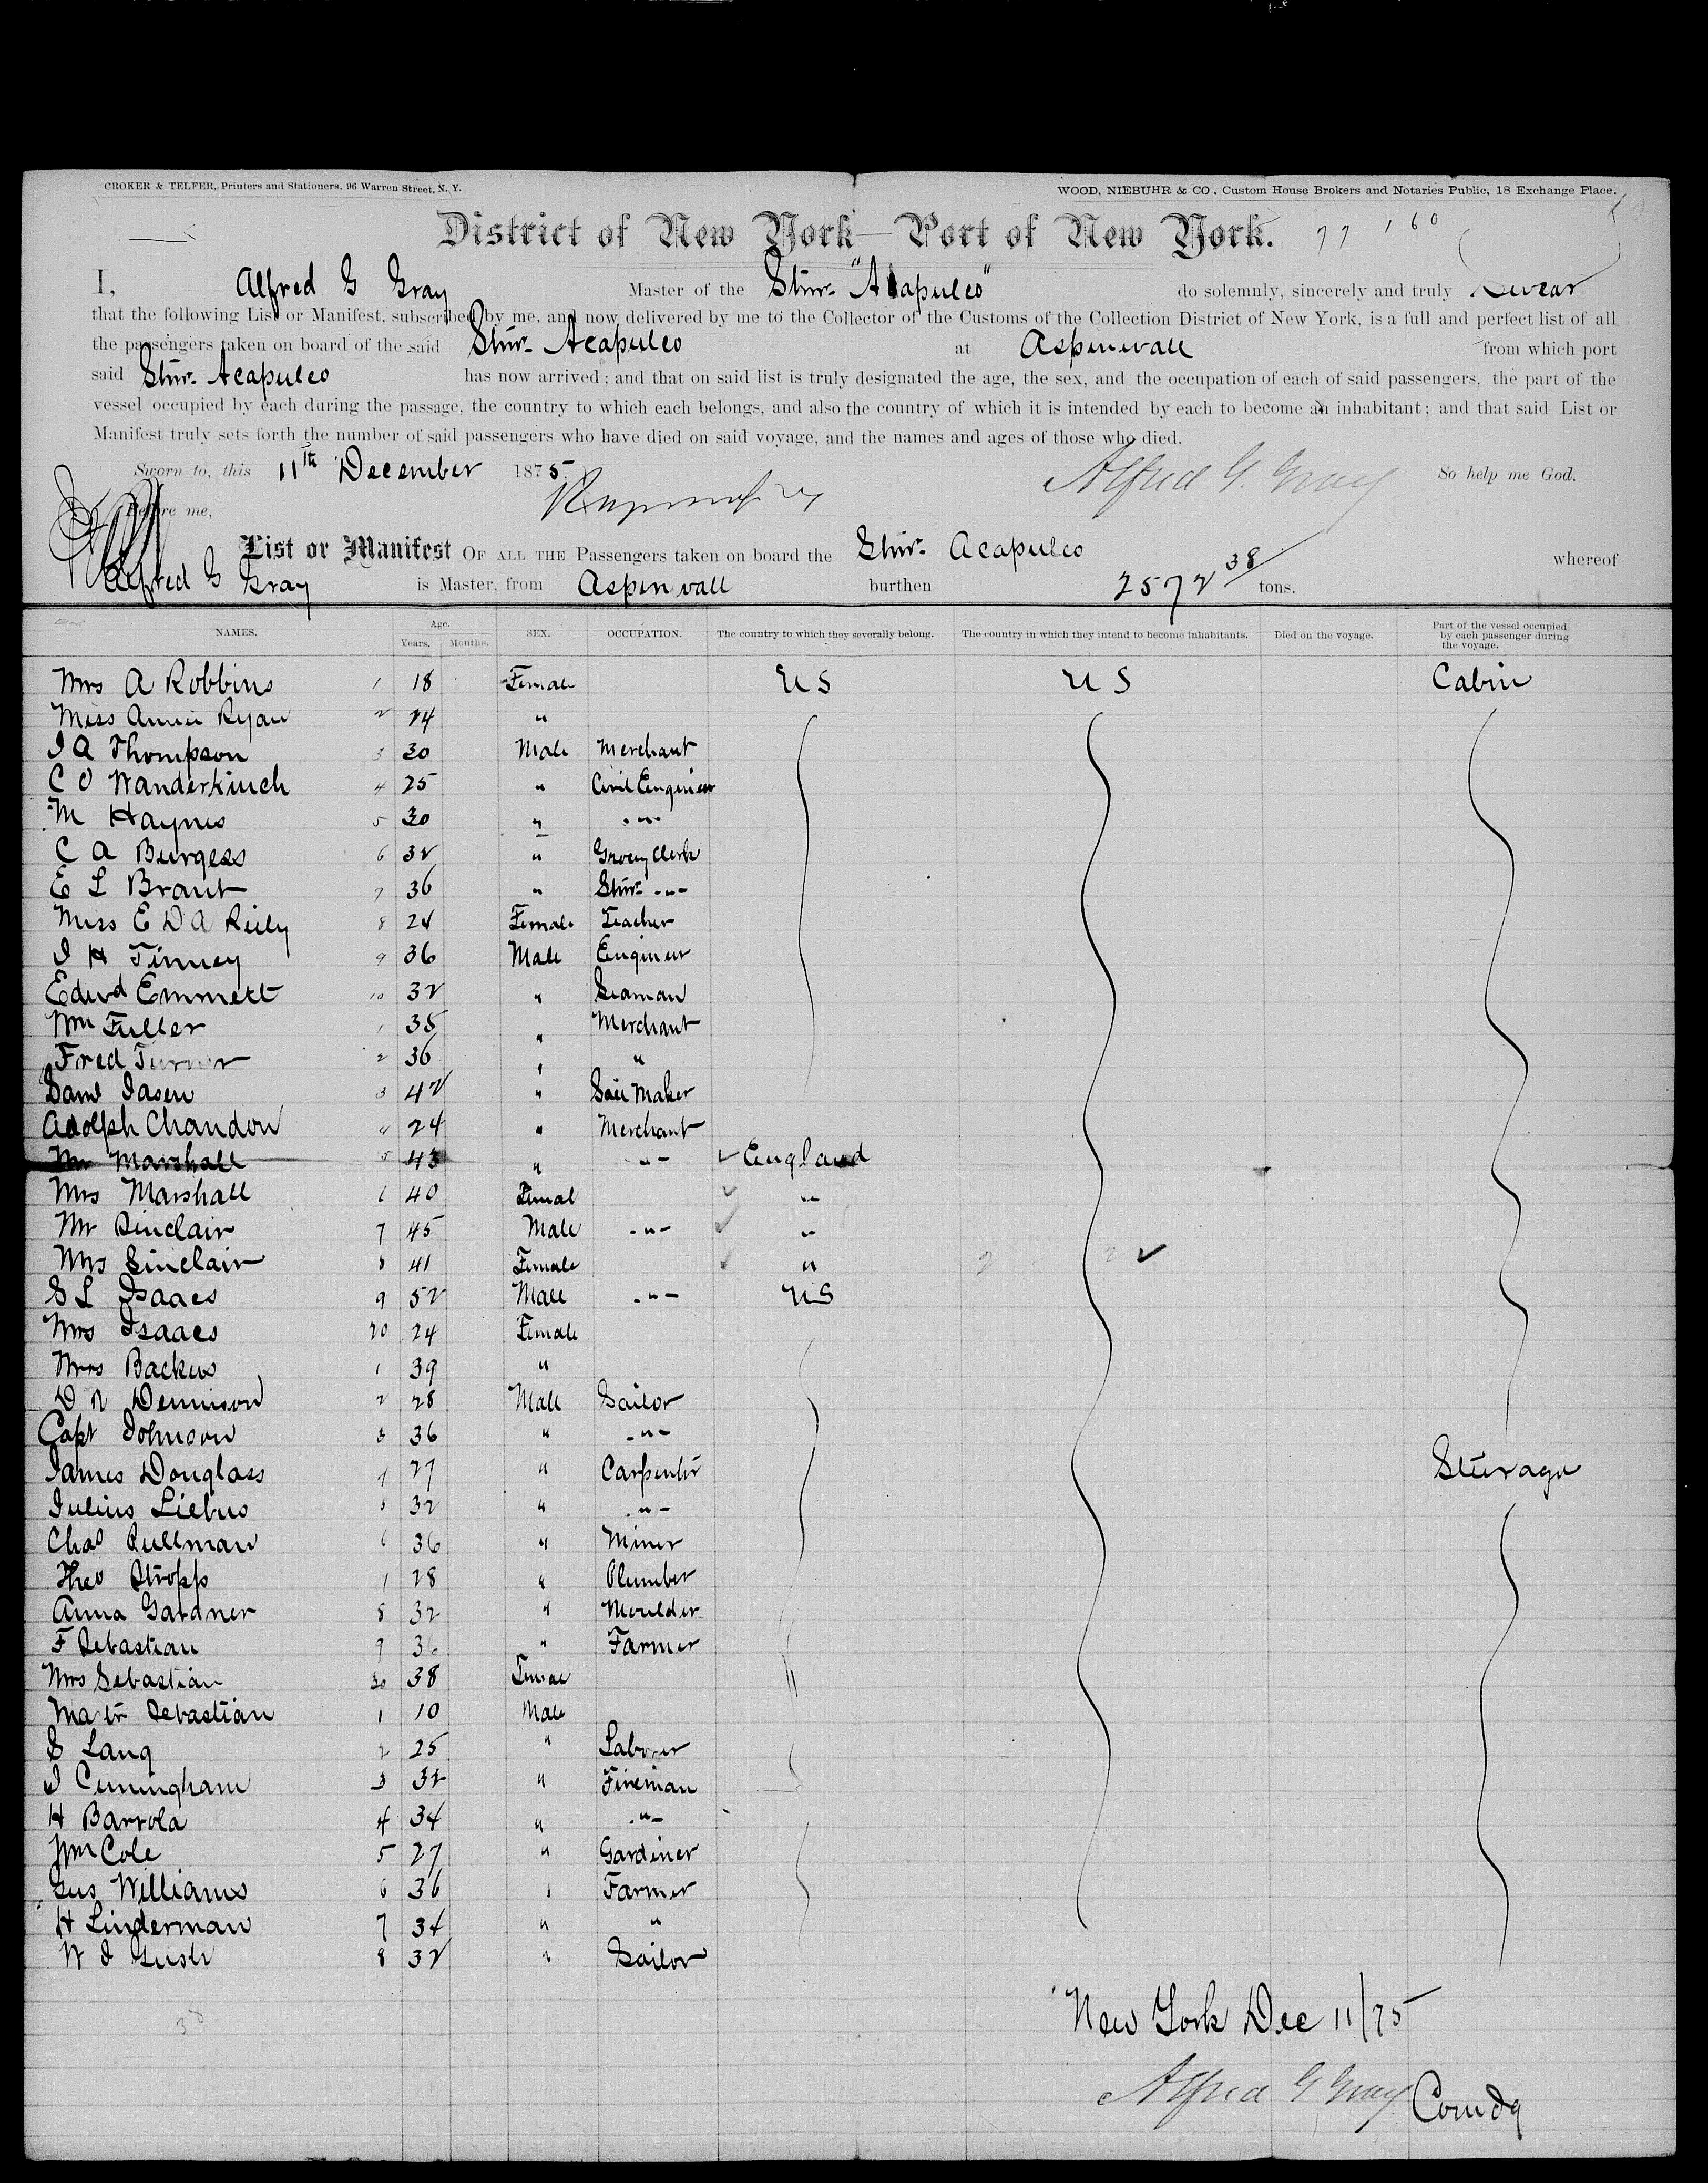 CROKER & TELFER, Printers and Stationers, 96 Warren Street, N. Y. WOOD, NIEBUHR & CO., Custom House Brokers and Notaries Public, 18 Exchange Place.
District of New York—Port of New York. 77 160
I, Alfred G Gray Master of the Stmr. "Acapulco" do solemnly, sincerely and truly Swear
that the following List or Manifest, subscribed by me, and now delivered by me to the Collector of the Customs of the Collection District of New York, is a full and perfect list of all
the passengers taken on board of the said Stmr. Acapulco at Aspinwall from which port
said Stmr. Acapulco has now arrived; and that on said list is truly designated the age, the sex, and the occupation of each of said passengers, the part of the
vessel occupied by each during the passage, the country to which each belongs, and also the country of which it is intended by each to become an inhabitant; and that said List or
Manifest truly sets forth the number of said passengers who have died on said voyage, and the names and ages of those who died.
Sworn to, this 11th December 1875. Alfred G. Gray So help me God.
Before me,
List or Manifest OF ALL THE Passengers taken on board the Stmr. Acapulco whereof
Alfred G Gray is Master, from Aspinwall burthen 2572 38/ tons.
NAMES. Age. Years. Months. SEX. OCCUPATION. The country to which they severally belong. The country in which they intend to become inhabitants. Died on the voyage. Part of the vessel occupied by each passenger during the voyage.
Mrs A Robbins 1 18 Female U S U S Cabin
Miss Annie Ryan 2 24 "
J A Thompson 3 30 Male Merchant
C O Wanderkinch 4 25 " Civil Engineer
M Haynes 5 30 " "
C A Burgess 6 32 " Grocery Clerk
E L Brant 7 36 " Stmr. "
Miss E D A Reily 8 24 Female Teacher
J H Tinney 9 36 Male Engineer
Edwd Emmett 10 32 " Seaman
Wm Fuller 1 35 " Merchant
Fred Turner 2 36 " "
Saml Iasen 3 42 " Sail Maker
Adolph Chandon 4 24 " Merchant
Mr Marshall 5 43 " " England
Mrs Marshall 6 40 Femal "
Mr Sinclair 7 45 Male " "
Mrs Sinclair 8 41 Female "
S L Isaacs 9 52 Male " U S
Mrs Isaacs 20 24 Female
Mrs Backus 1 39 "
D N Dennison 2 28 Male Sailor
Capt Johnson 3 36 " "
James Douglass 4 27 " Carpenter Steerage
Julius Liebus 5 32 " "
Chas Pullman 6 36 " Miner
Theo Stropp 7 28 " Plumber
Anna Gardner 8 32 " Moulder
F Sebastian 9 36 " Farmer
Mrs Sebastian 30 38 Female
Mastr Sebastian 1 10 Male
S Lang 2 25 " Laborer
J Cuningham 3 32 " Fireman
H Barrola 4 34 " "
Wm Cole 5 27 " Gardiner
Gus Williams 6 36 " Farmer
H Linderman 7 34 " "
W J 8 32 " Sailor
38
New York Dec 11/75
Alfred G Gray Comdg